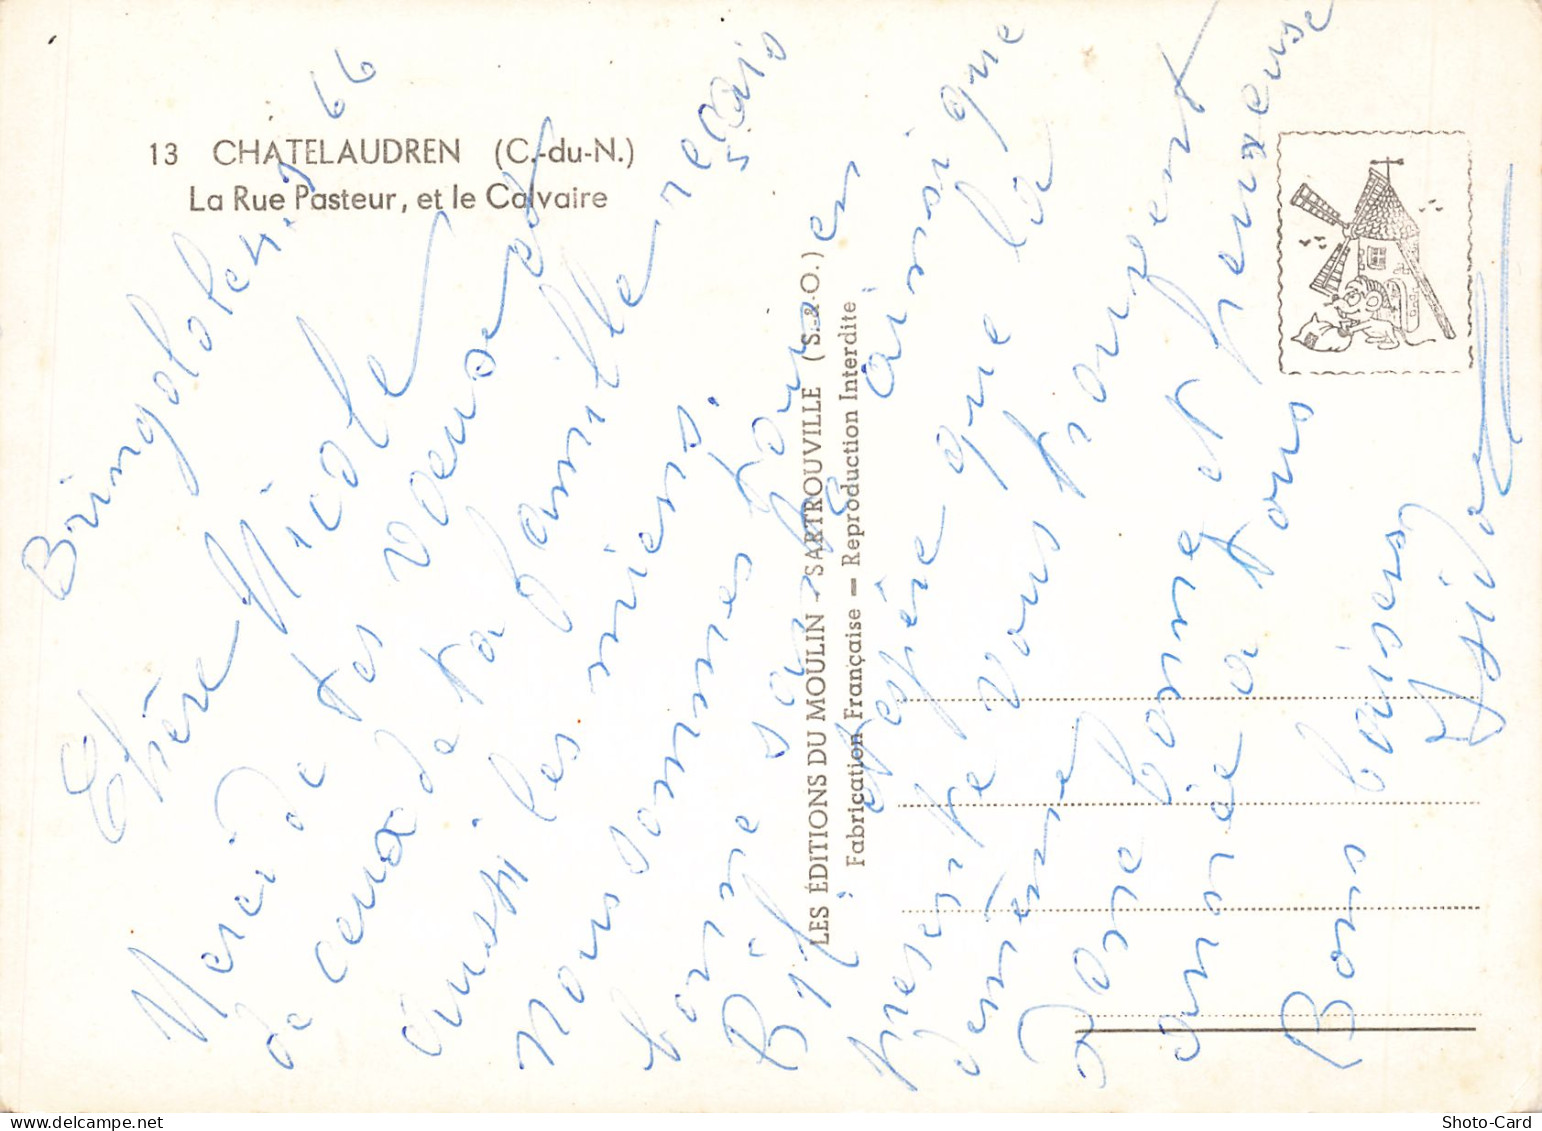 13 CHATELAUDREN (C.-du-N.)
La Rue Pasteur, et le Calvaire
LES ÉDITIONS DU MOULIN - SARTROUVILLE (S.-&-O.)
Fabrication Française — Reproduction Interdite
Bringolo le 4.1 66
Chère Nicole
Merci de tes voeux et
de ceux de ta famille reçois
aussi les miens.
Nous sommes tous en
bonne santé ainsi que
et espère que la
présente vous trouvent
de même
Bonne et heureuse
année à tous
Bons baisers
Shoto-Card